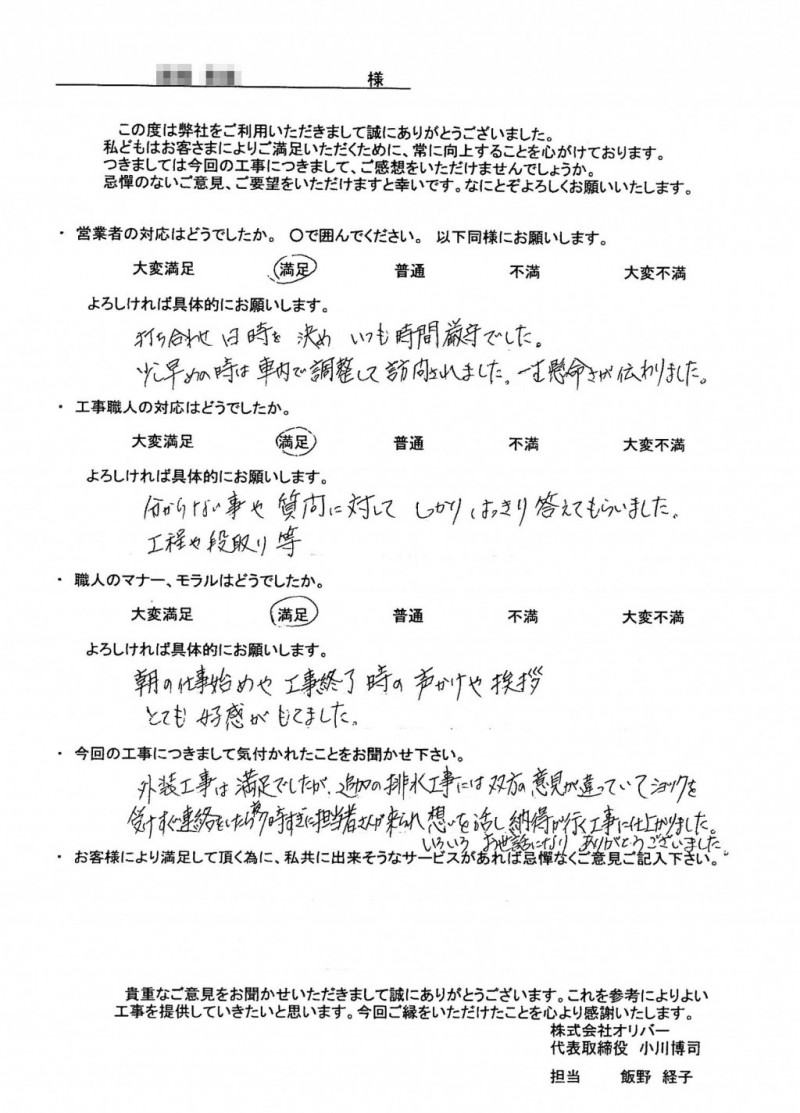 様
この度は弊社をご利用いただきまして誠にありがとうございました。
私どもはお客さまによりご満足いただくために、常に向上することを心がけております。
つきましては今回の工事につきまして、ご感想をいただけませんでしょうか。
忌憚のないご意見、ご要望をいただけますと幸いです。なにとぞよろしくお願いいたします。
・ 営業者の対応はどうでしたか。 〇で囲んでください。 以下同様にお願いします。
大変満足 満足 普通 不満 大変不満
よろしければ具体的にお願いします。
打ち合わせ日時を決めいつも時間厳守でした。
少し早めの時は車内で調整して訪問されました。一生懸命さが伝わりました。
・ 工事職人の対応はどうでしたか。
大変満足 満足 普通 不満 大変不満
よろしければ具体的にお願いします。
分からない事や質問に対してしっかりはっきり答えてもらいました。
工程や段取り等
・ 職人のマナー、モラルはどうでしたか。
大変満足 満足 普通 不満 大変不満
よろしければ具体的にお願いします。
朝の仕事始めや工事終了時の声かけや挨拶
とても好感がもてました。
・ 今回の工事につきまして気付かれたことをお聞かせ下さい。
外装工事は満足でしたが、追加の排水工事には双方の意見が違っていてショックを
受けすぐ連絡をいたら 時すぎに担当者さんが来られ想いを話し納得が行く工事に仕上がりました。
いろいろお世話になりありがとうございました。
・ お客様により満足して頂く為に、私共に出来そうなサービスがあれば忌憚なくご意見ご記入下さい。
貴重なご意見をお聞かせいただきまして誠にありがとうございます。これを参考によりよい
工事を提供していきたいと思います。今回ご縁をいただけたことを心より感謝いたします。
株式会社オリバー
代表取締役 小川博司
担当 飯野 経子